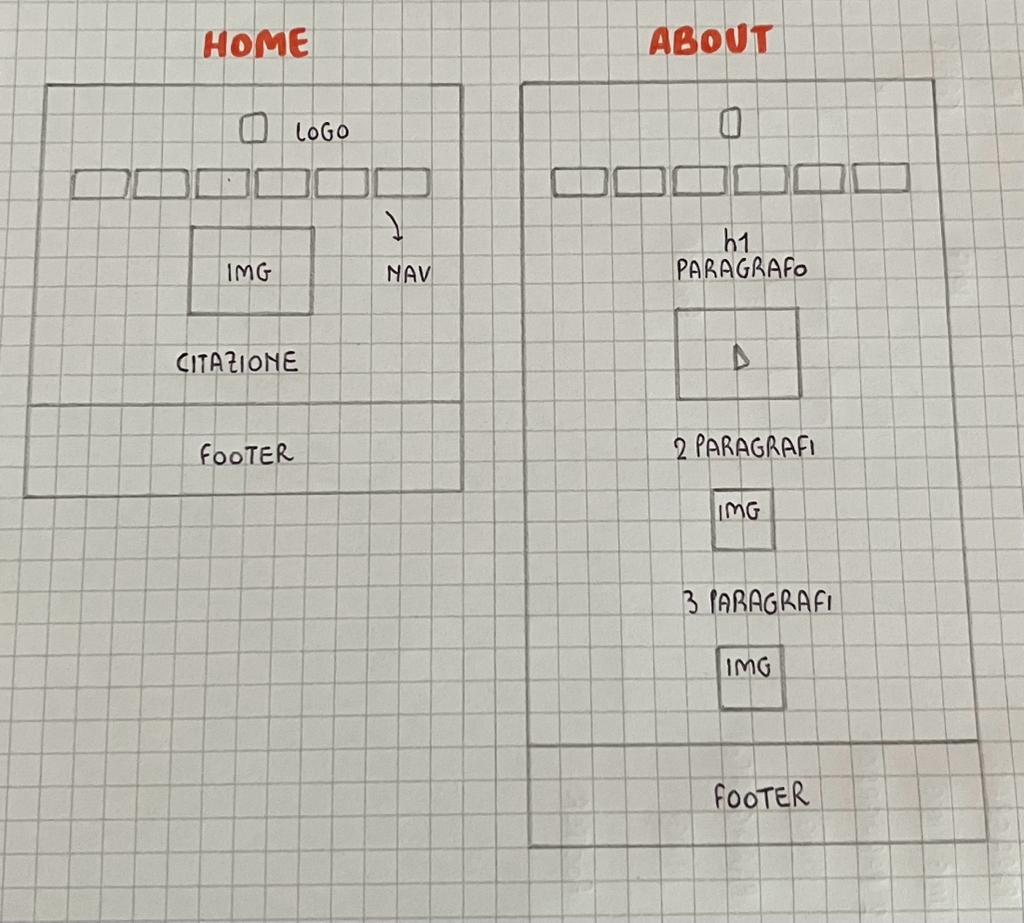 HOME
LOGO
IMG
NAV
CITAZIONE
FOOTER
ABOUT
h1
PARAGRAFO
2 PARAGRAFI
IMG
3 PARAGRAFI
IMG
FOOTER